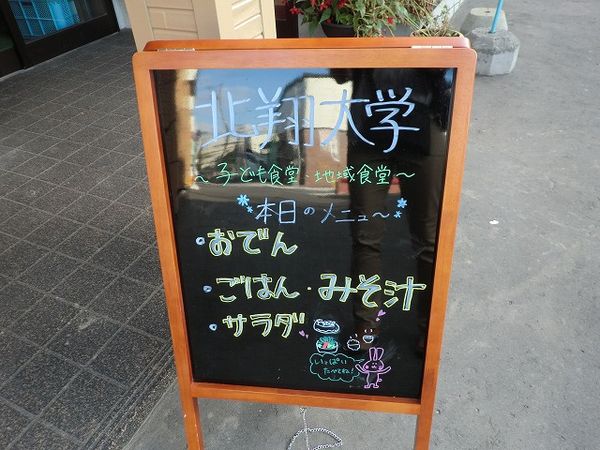 北翔大学
～子ども食堂・地域食堂～
*本日のメニュー*
・おでん
・ごはん・みそ汁
・サラダ
いっぱい
たべてね!